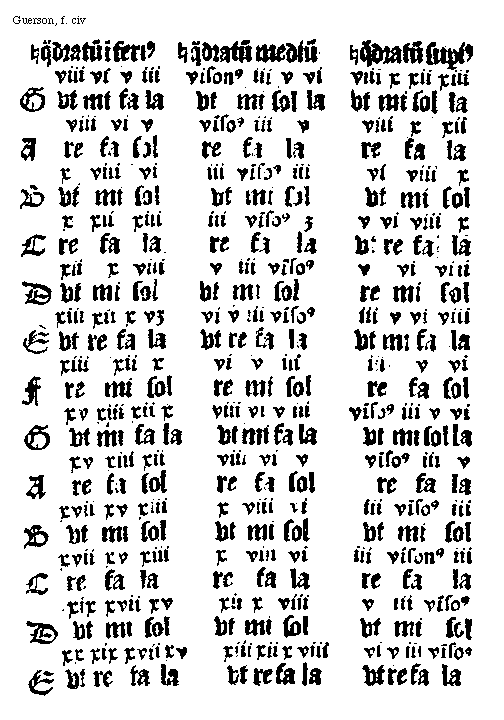 Guerson, f. civ
ħq̃dratũ iferi⁹ ħq̃dratũ mediũ ħq̃dratũ supi⁹
viii vi v iii viſon⁹ iii v vi viii x xii xiii
G vt mi fa la vt mi ſol la vt mi ſol la
viii vi v viſo⁹ iii v viii x xii
A re fa ſol re fa la re fa la
x viii vi iii viſo⁹ iii vi viii x
B vt mi ſol vt mi ſol vt mi ſol
x xii xiii iii viſo⁹ ʒ v vi viii x
C re fa la re fa la vt re fa la
xii x viii v iii viſo⁹ v vi viii
D vt mi ſol vt mi ſol re mi ſol
xiii xii x vʒ vi v iii viſo⁹ iii v vi viii
E vt re fa la vt re fa la vt mi fa la
xiii xii x vi v iii iii v vi
F re mi ſol re mi ſol re fa ſol
xv xiii xii x viii vi v iii viſo⁹ iii v vi
G vt mi fa la vt mi fa la vt mi ſol la
xv xiii xii viii vi v viſo⁹ iii v
A re fa ſol re fa ſol re fa la
xvii xv xiii x viii vi iii viſo⁹ iii
B vt mi ſol vt mi ſol vt mi ſol
xvii xv xiii x viii vi iii viſon⁹ iii
C re fa la re fa la re fa la
xix xvii xv xii x viii v iii viſo⁹
D vt mi ſol vt mi ſol vt mi ſol
xx xix xvii xv xiii xii x viii vi v iii viſo⁹
E vt re fa la vt re fa la vt re fa la